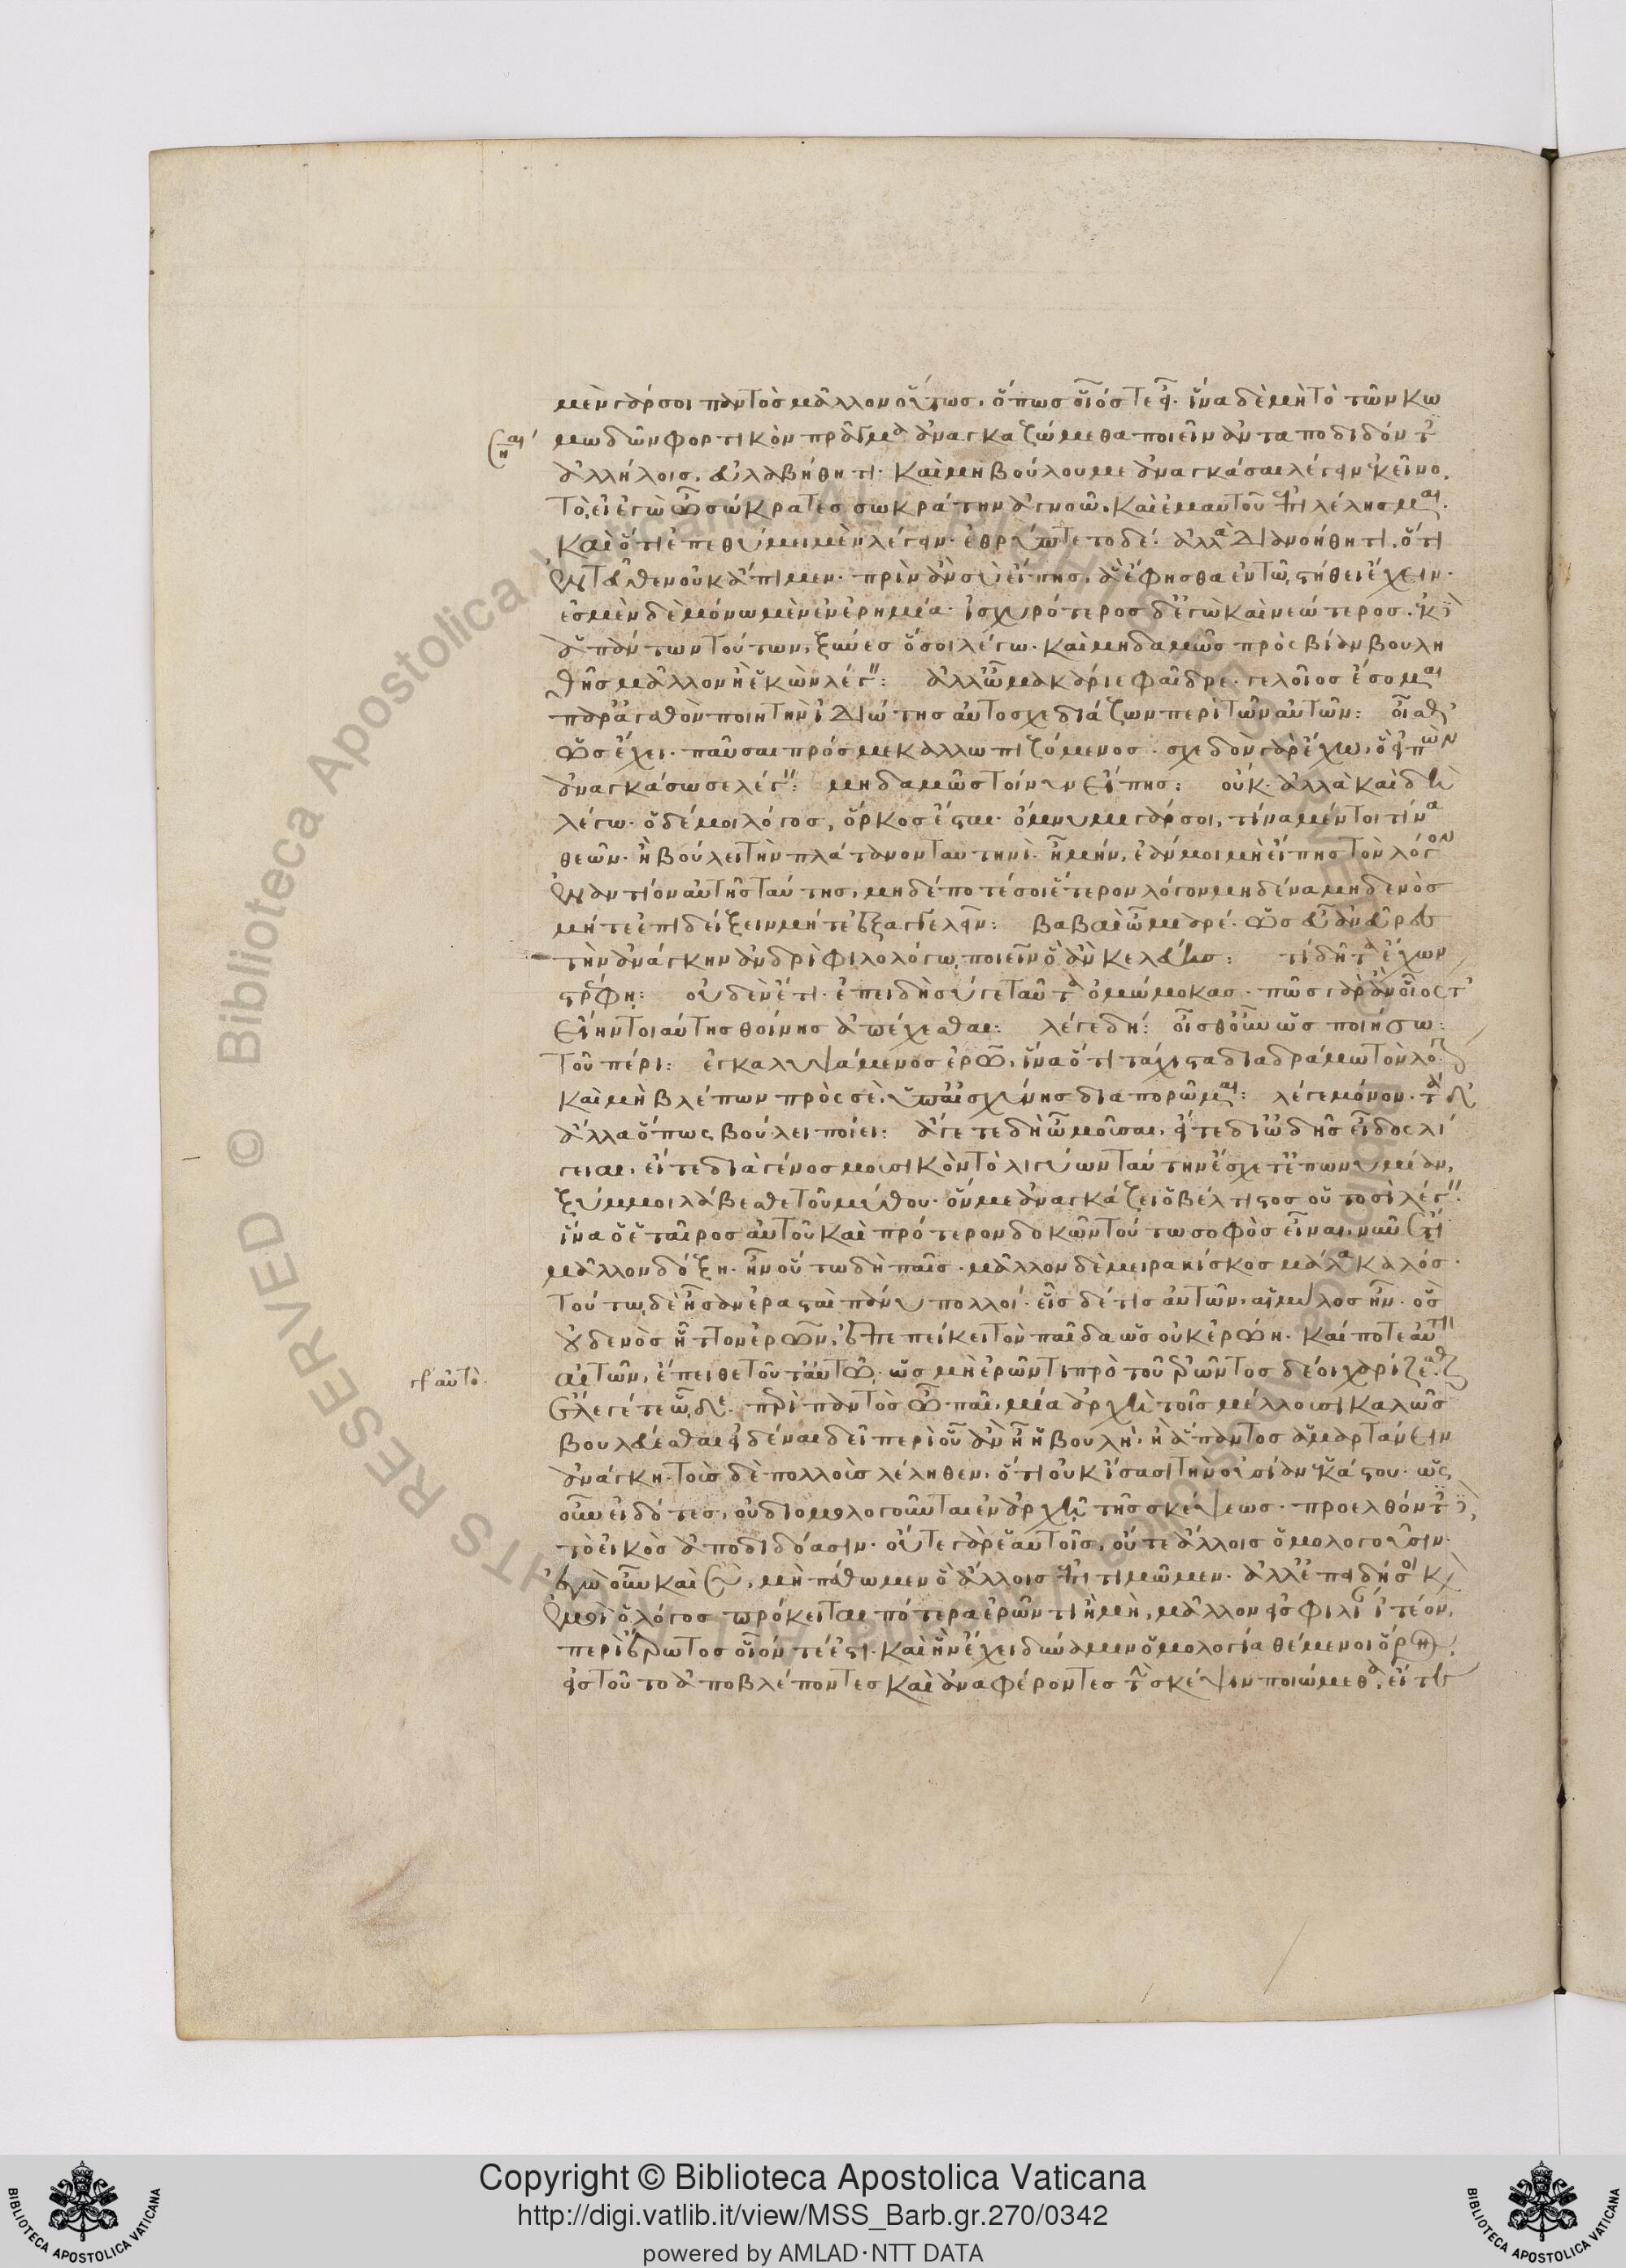 μὲν γάρ σοι παντὸς μᾶλλον οὕτως, ὅπως οἷός τε εἶ. ἵνα δὲ μὴ τὸ τῶν κω
μωδῶν φορτικὸν πρᾶγμα ἀναγκαζώμεθα ποιεῖν ἀνταποδιδόντες
ἀλλήλοις, εὐλαβήθητι. καὶ μὴ βούλου με ἀναγκάσαι λέγειν ἐκεῖνο
τὸ, εἰ ἐγὼ ὦ σώκρατες σωκράτην ἀγνοῶ, καὶ ἐμαυτοῦ ἐπιλέλησμαι.
καὶ ὅτι ἐπεθύμει μὲν λέγειν. ἐθρύπτετο δέ. ἀλλὰ διανοήθητι, ὅτι
ἐντεῦθεν οὐκ ἄπιμεν. πρὶν ἂν σὺ εἴπῃς, ἃ ἔφησθα ἐν τῷ στήθει ἔχειν.
ἐσμὲν δὲ μόνω μὲν ἐν ἐρημίᾳ. ἰσχυρότερος δ' ἐγὼ καὶ νεώτερος. ἐκ δὲ
ἁπάντων τούτων, ξύνες ὅ σοι λέγω. καὶ μηδαμῶς πρὸς βίαν βουλη
θῇς μᾶλλον ἢ ἑκὼν λέγειν: ἀλλ' ὦ μακάριε φαῖδρε. γελοῖος ἔσομαι
παρ' ἀγαθὸν ποιητὴν ἰδιώτης αὐτοσχεδιάζων περὶ τῶν αὐτῶν: οἶσθ'
ὡς ἔχει. παῦσαι πρός με καλλωπιζόμενος. σχεδὸν γὰρ ἔχω, ὃ εἰπὼν
ἀναγκάσω σε λέγειν: μηδαμῶς τοίνυν εἴπῃς: οὔκ. ἀλλὰ καὶ δὴ
λέγω. ὁ δέ μοι λόγος, ὅρκος ἔσται. ὄμνυμι γάρ σοι, τίνα μέντοι τίνα
θεῶν. ἢ βούλει τὴν πλάτανον ταυτηνί. ἦ μήν, ἐάν μοι μὴ εἴπῃς τὸν λόγον
ἐναντίον αὐτῆς ταύτης, μηδέποτέ σοι ἕτερον λόγον μηδένα μηδενὸς
μήτε ἐπιδείξειν μήτε ἐξαγγελεῖν: βαβαὶ ὦ μιαρέ. ὡς εὖ ἀνεῦρες
τὴν ἀνάγκην ἀνδρὶ φιλολόγῳ, ποιεῖν ὃ ἂν κελεύῃς: τί δῆτα ἔχων
στρέφῃ: οὐδὲν ἔτι. ἐπειδὴ σύ γε ταῦτα ὀμώμοκας. πῶς γὰρ ἂν οἷός τ'
εἴην τοιαύτης θοίνης ἀπέχεσθαι: λέγε δή: οἶσθ' οὖν ὡς ποιήσω:
τοῦ πέρι: ἐγκαλυψάμενος ἐρῶ, ἵνα ὅτι τάχιστα διαδράμω τὸν λόγον
καὶ μὴ βλέπων πρὸς σὲ, ὑπ' αἰσχύνης διαπορῶμαι: λέγε μόνον. τὰ δ'
ἄλλα ὅπως βούλει ποίει: ἄγετε δὴ ὦ μοῦσαι, εἴτε δι' ᾠδῆς εἶδος λί
γειαι, εἴτε διὰ γένος μουσικὸν τὸ λιγύων ταύτην ἔσχετ' ἐπωνυμίαν,
ξύμ μοι λάβεσθε τοῦ μύθου. ὅν με ἀναγκάζει ὁ βέλτιστος οὑτοσὶ λέγειν.
ἵνα ὁ ἑταῖρος αὐτοῦ καὶ πρότερον δοκῶν τούτῳ σοφὸς εἶναι, νῦν ἔτι
μᾶλλον δόξῃ. ἦν οὕτω δὴ παῖς. μᾶλλον δὲ μειρακίσκος μάλα καλός.
τούτῳ δὲ ἦσαν ἐρασταὶ πάνυ πολλοί. εἷς δέ τις αὐτῶν, αἱμύλος ἦν. ὃς
οὐδενὸς ἧττον ἐρῶν, ἐπεπείκει τὸν παῖδα ὡς οὐκ ἐρῴη. καί ποτε αὐτὸν
αἰτῶν, ἔπειθε τοῦτ' αὐτῷ, ὡς μὴ ἐρῶντι πρὸ τοῦ ἐρῶντος δέοι χαρίζεσθαι
γρ αὐτὸ.
ἔλεγέ τε ὧδε. περὶ παντὸς ὦ παῖ, μία ἀρχὴ τοῖς μέλλουσι καλῶς
βουλεύεσθαι. εἰδέναι δεῖ περὶ οὗ ἂν ᾖ ἡ βουλή. ἢ ἅπαντος ἁμαρτάνειν
ἀνάγκη. τοὺς δὲ πολλοὺς λέληθεν, ὅτι οὐκ ἴσασι τὴν οὐσίαν ἑκάστου. ὡς
οὖν εἰδότες, οὐ διομολογοῦνται ἐν ἀρχῇ τῆς σκέψεως. προελθόντες δὲ,
τὸ εἰκὸς ἀποδιδόασιν. οὔτε γὰρ ἑαυτοῖς, οὔτε ἀλλήλοις ὁμολογοῦσιν.
ἐγὼ οὖν καὶ σὺ, μὴ πάθωμεν ὃ ἄλλοις ἐπιτιμῶμεν. ἀλλ' ἐπειδή σοι καὶ
ἐμοὶ ὁ λόγος πρόκειται πότερα ἐρῶντι ἢ μὴ, μᾶλλον εἰς φιλίαν ἰτέον,
περὶ ἔρωτος οἷόν τέ ἐστι. καὶ ἣν ἔχει δύναμιν ὁμολογίᾳ θέμενοι ὅρον,
εἰς τοῦτο ἀποβλέποντες καὶ ἀναφέροντες τὴν σκέψιν ποιώμεθα, εἴτε
Copyright © Biblioteca Apostolica Vaticana
http://digi.vatlib.it/view/MSS_Barb.gr.270/0342
powered by AMLAD·NTT DATA